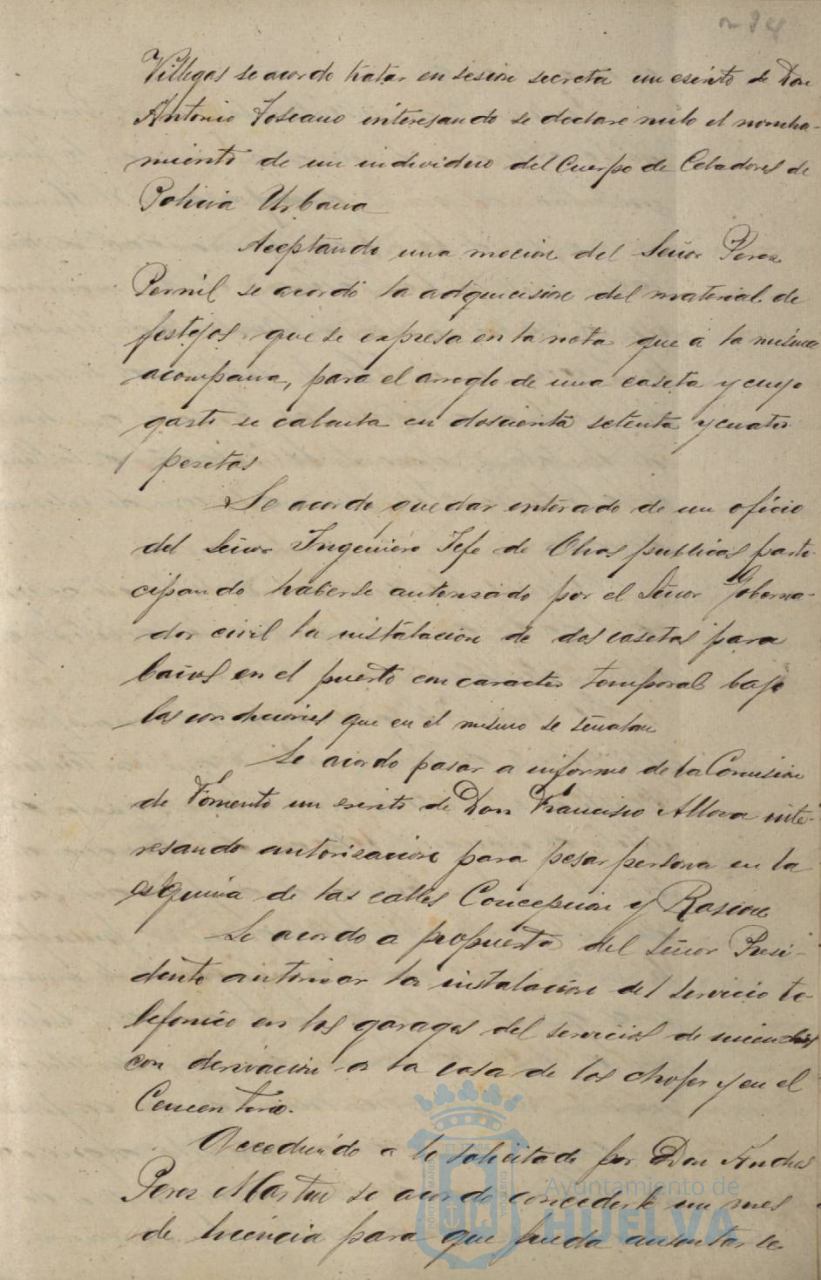 Villegas se acordo tratar en sesion secreta un escrito de Don
Antonio Toscano interesando se declare nulo el nombra-
miento de un individuo del Cuerpo de Celadores de
Policia Urbana
Aceptando una mocion del Señor Perez
Pernil se acordó la adquicision del material de
festejos que se expresa en la nota que á la misma
acompana, para el arreglo de una caseta y cuyo
gasto se calcula en doscienta setenta y cuatro
pesetas
Se acordo quedar enterado de un oficio
del Señor Ingeniero Jefe de Obras publicas parti-
cipando haberse autorizado por el Señor Goberna-
dor civil la instalacion de dos casetas para
baños en el puerto con caracter temporal bajo
las condiciones que en el mismo se señalan
Se acordo pasar a informe de la Comision
de Fomento un escrito de Don Francisco inte-
resando autorizacion para pesar persona en la
esquina de las calles Concepcion y Rascon
Se acordo a propuesta del Señor Presi-
dente autorizar la instalacion del servicio te-
lefonico en los garages del servicios de incendios
con derivacion a la casa de los chofer y en el
Cementerio.
Accediendo a lo solicitado por Don Andres
Perez Martin se acordo concederle un mes
de licencia para que pueda ausentarse
Ayuntamiento de
HUELVA